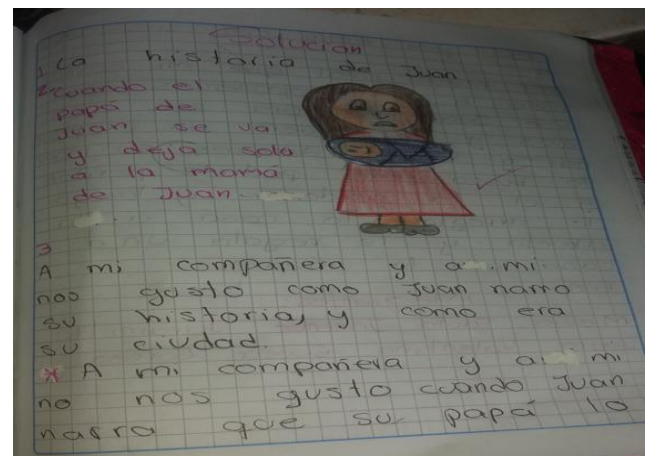 Solución
1 La historia de Juan
2 Cuando el
papá de
Juan se va
y deja sola
a la mamá
de Juan
3
A mi compañera y a mi
nos gusto como Juan narro
su historia, y como era
su ciudad.
* A mi compañera y a mi
no nos gusto cuando Juan
narra que su papá lo